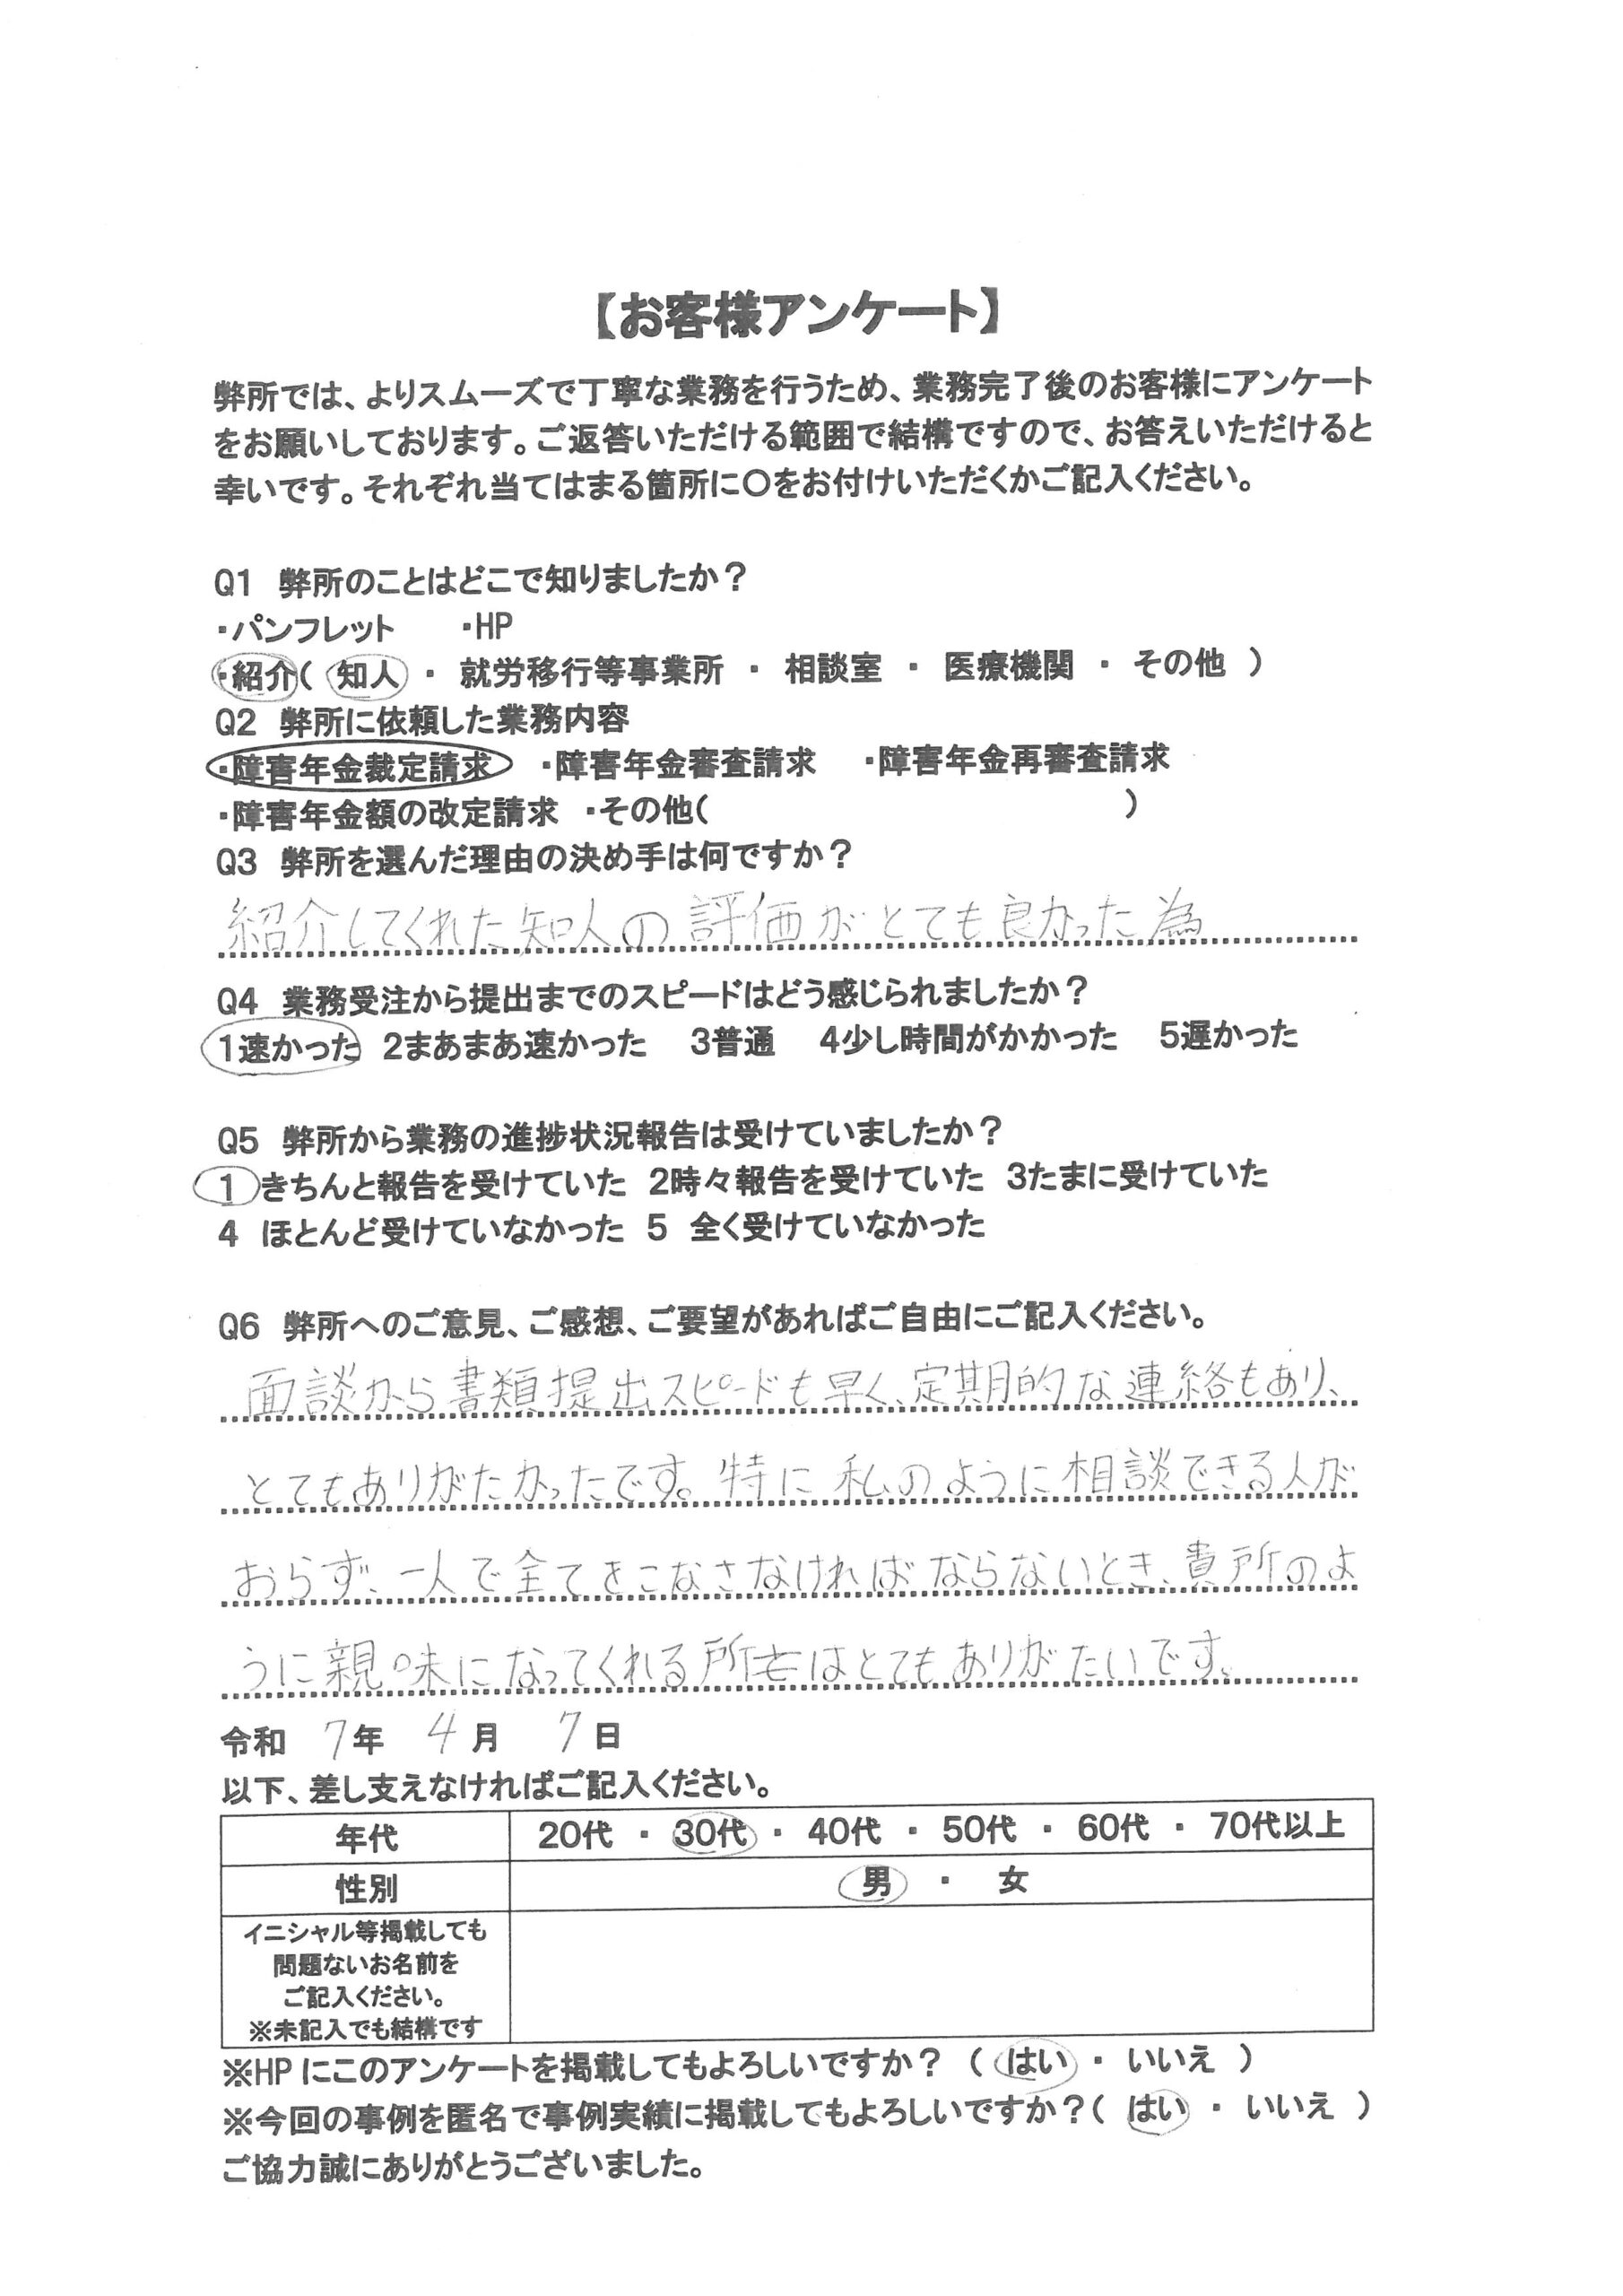 【お客様アンケート】
弊所では、よりスムーズで丁寧な業務を行うため、業務完了後のお客様にアンケート
をお願いしております。ご返答いただける範囲で結構ですので、お答えいただけると
幸いです。それぞれ当てはまる箇所に○をお付けいただくかご記入ください。
Q1 弊所のことはどこで知りましたか？
・パンフレット ・HP
・紹介( 知人 ・ 就労移行等事業所 ・ 相談室 ・ 医療機関 ・ その他 )
Q2 弊所に依頼した業務内容
・障害年金裁定請求 ・障害年金審査請求 ・障害年金再審査請求
・障害年金額の改定請求 ・その他( )
Q3 弊所を選んだ理由の決め手は何ですか？
紹介してくれた知人の評価がとても良かった為
Q4 業務受注から提出までのスピードはどう感じられましたか？
1速かった 2まあまあ速かった 3普通 4少し時間がかかった 5遅かった
Q5 弊所から業務の進捗状況報告は受けていましたか？
1 きちんと報告を受けていた 2時々報告を受けていた 3たまに受けていた
4 ほとんど受けていなかった 5 全く受けていなかった
Q6 弊所へのご意見、ご感想、ご要望があればご自由にご記入ください。
面談から書類提出スピードも早く、定期的な連絡もあり、
とてもありがたかったです。特に私のように相談できる人が
おらず、一人で全てをこなさなければならないとき、貴所のよ
うに親味になってくれる所はとてもありがたいです。
令和 7年 4月 7日
以下、差し支えなければご記入ください。
年代 20代 ・ 30代 ・ 40代 ・ 50代 ・ 60代 ・ 70代以上
性別 男 ・ 女
イニシャル等掲載しても
問題ないお名前を
ご記入ください。
※未記入でも結構です
※HPにこのアンケートを掲載してもよろしいですか？ ( はい ・ いいえ )
※今回の事例を匿名で事例実績に掲載してもよろしいですか？( はい ・ いいえ )
ご協力誠にありがとうございました。